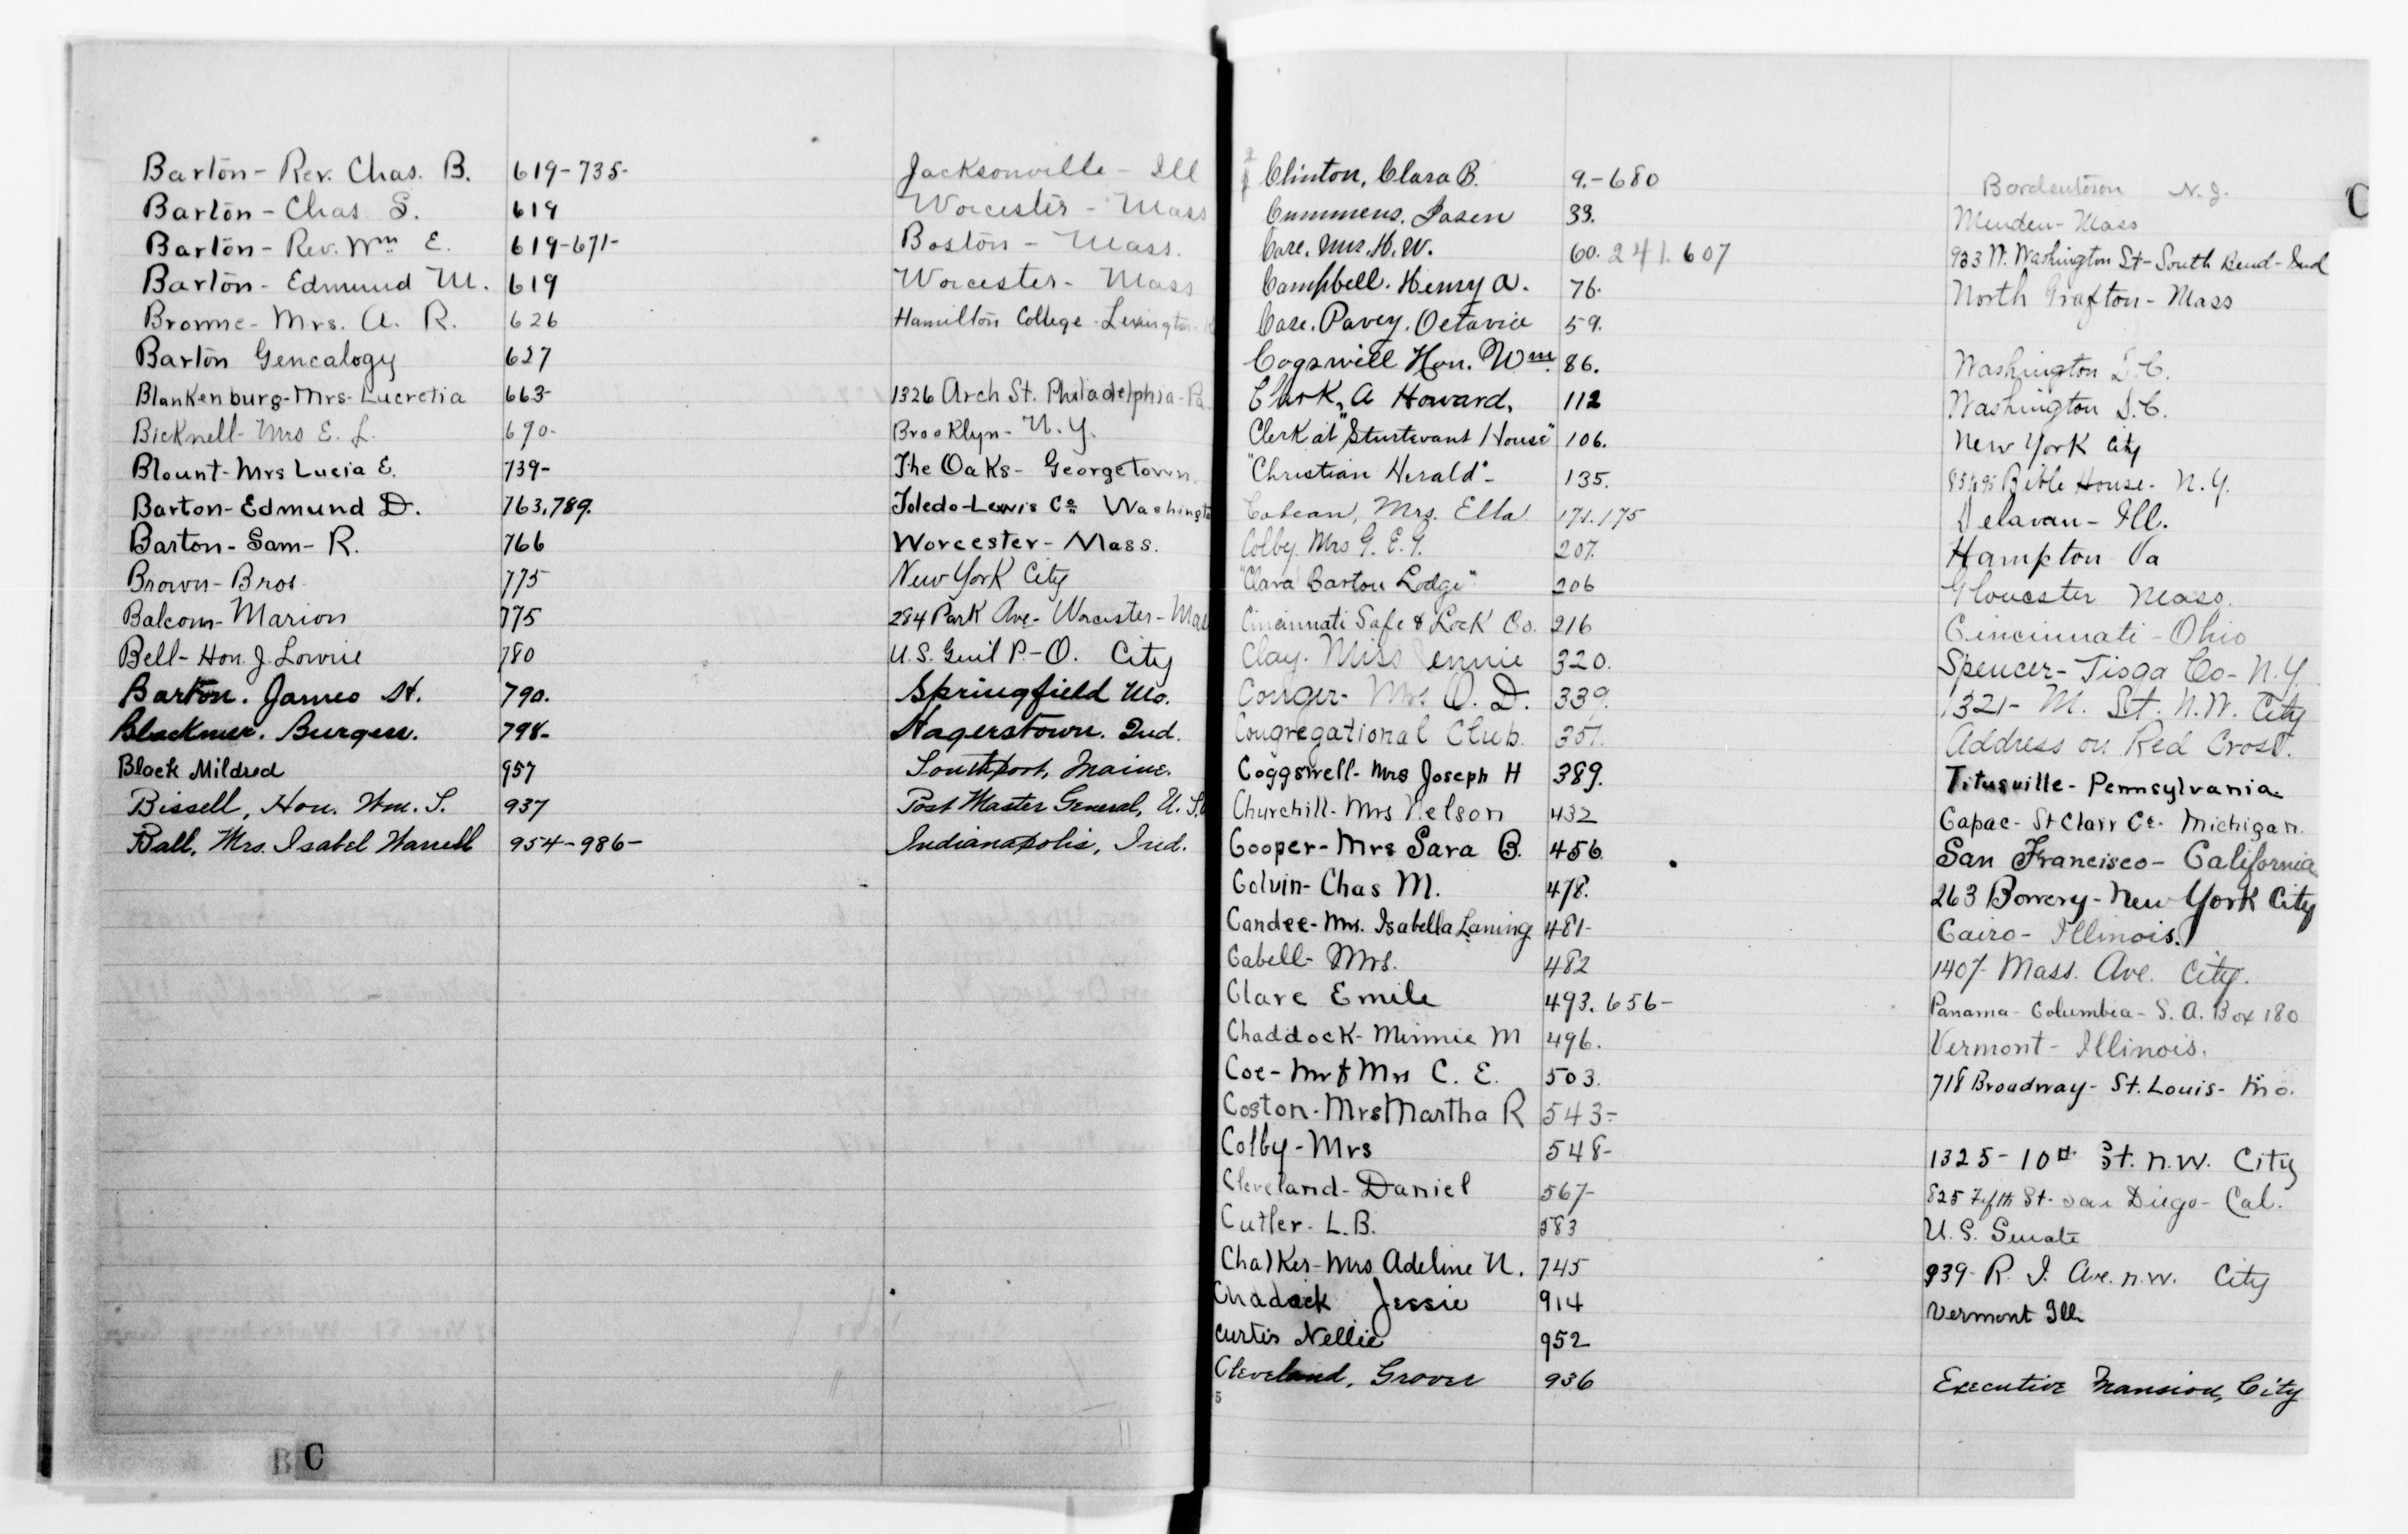 Barton - Rev. Chas. B. 619-735- Jacksonville - Ill
Barton - Chas S. 619 Worcester - Mass
Barton - Rev. Wm E. 619-671- Boston - Mass.
Barton - Edmund M. 619 Worcester - Mass
Browne - Mrs. A. R. 626 Hamilton College - Lexington -
Barton Genealogy 627
Blankenburg - Mrs - Lucretia 663- 1326 Arch St. Philadelphia - Pa.
Bicknell - Mrs E. L. 690- Brooklyn - N.Y.
Blount - Mrs Lucia E. 739- The Oaks - Georgetown.
Barton - Edmund D. 763,789. Toledo - Lewis Co Washington
Barton - Sam - R. 766 Worcester - Mass.
Brown - Bros. 775 New York City
Balcom - Marion 775 284 Park Ave - Worcester - Mass
Bell - Hon. J. Lowrie 780 U.S. Genl P.-O. City
Barton. James St. 790. Springfield Mo.
Blackmer. Burgess. 798- Hagerstown. Ind.
Black Mildred 957 Southport, Maine.
Bissell, Hon. Wm. S. 937 Post Master General, U.S.
Ball, Mrs. Isabel Worrell 954-986- Indianapolis, Ind.
B C
Clinton, Clara B. 9.-680 Bordentown N.J.
C
Cummens. Jasen 33. Menden - Mass
Case. Mrs. H. W. 60. 241. 607 933 W. Washington St - South Bend - Ind
Campbell. Henry A. 76. North Grafton - Mass
Case. Pavey. Octavia 59.
Cogswell Hon. Wm. 86. Washington D.C.
Clark, A Howard, 112 Washington D.C.
Clerk at "Sturtevant House" 106. New York City
"Christian Herald" - 135. Bible House - N.Y.
Cabean, Mrs. Ella 171.175 Delavan - Ill.
Colby Mrs G. E. G. 207. Hampton Va
"Clara Barton Lodge" 206 Gloucester Mass.
Cincinnati Safe & Lock Co. 216 Cincinnati - Ohio
Clay. Miss Jennie 320. Spencer - Tioga Co - N.Y
Conger - Mrs. O. D. 339. 1321 - M. St. N.W. City
Congregational Club. 357. Address on Red Cross.
Coggswell - Mrs Joseph H 389. Titusville - Pennsylvania
Churchill - Mrs Nelson 432 Capac - St Clair Co - Michigan.
Cooper - Mrs Sara B. 456. San Francisco - California
Colvin - Chas M. 478. 263 Bowery - New York City
Candee - Mrs. Isabella Laning 481- Cairo - Illinois.
Cabell - Mrs. 482 1407- Mass. Ave. City.
Clare Emile 493. 656- Panama - Columbia - S. A. Box 180
Chaddock - Minnie M 496. Vermont - Illinois.
Coe - Mr & Mrs C. E. 503. 718 Broadway - St. Louis - Mo.
Coston - Mrs Martha R 543-
Colby - Mrs 548- 1325 - 10th St. N.W. City
Cleveland - Daniel 567- 825 Fifth St. San Diego - Cal.
Cutler - L.B. 583 U. S. Senate
Chalker - Mrs Adeline N. 745 939 - R. I. Ave. N.W. City
Chadock Jessie 914 Vermont Ill
Curtis Nellie 952
Cleveland, Grover 936 Executive Mansion, City
5